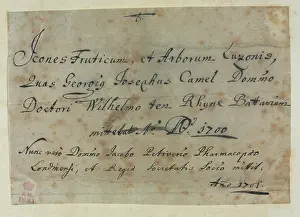 Icones Fruticum, et Arborum Luzonis,
Quas Georgig Josephus Camel Domino
Doctori Wilhelmo ten Rhyne Battaviam
mittebat. Ao. 1700
Nunc vero Domino Jacobo Petiverio Pharmacopæo
Londinensi, et Regiæ Societatis Socio mittit.
Ano 1701.